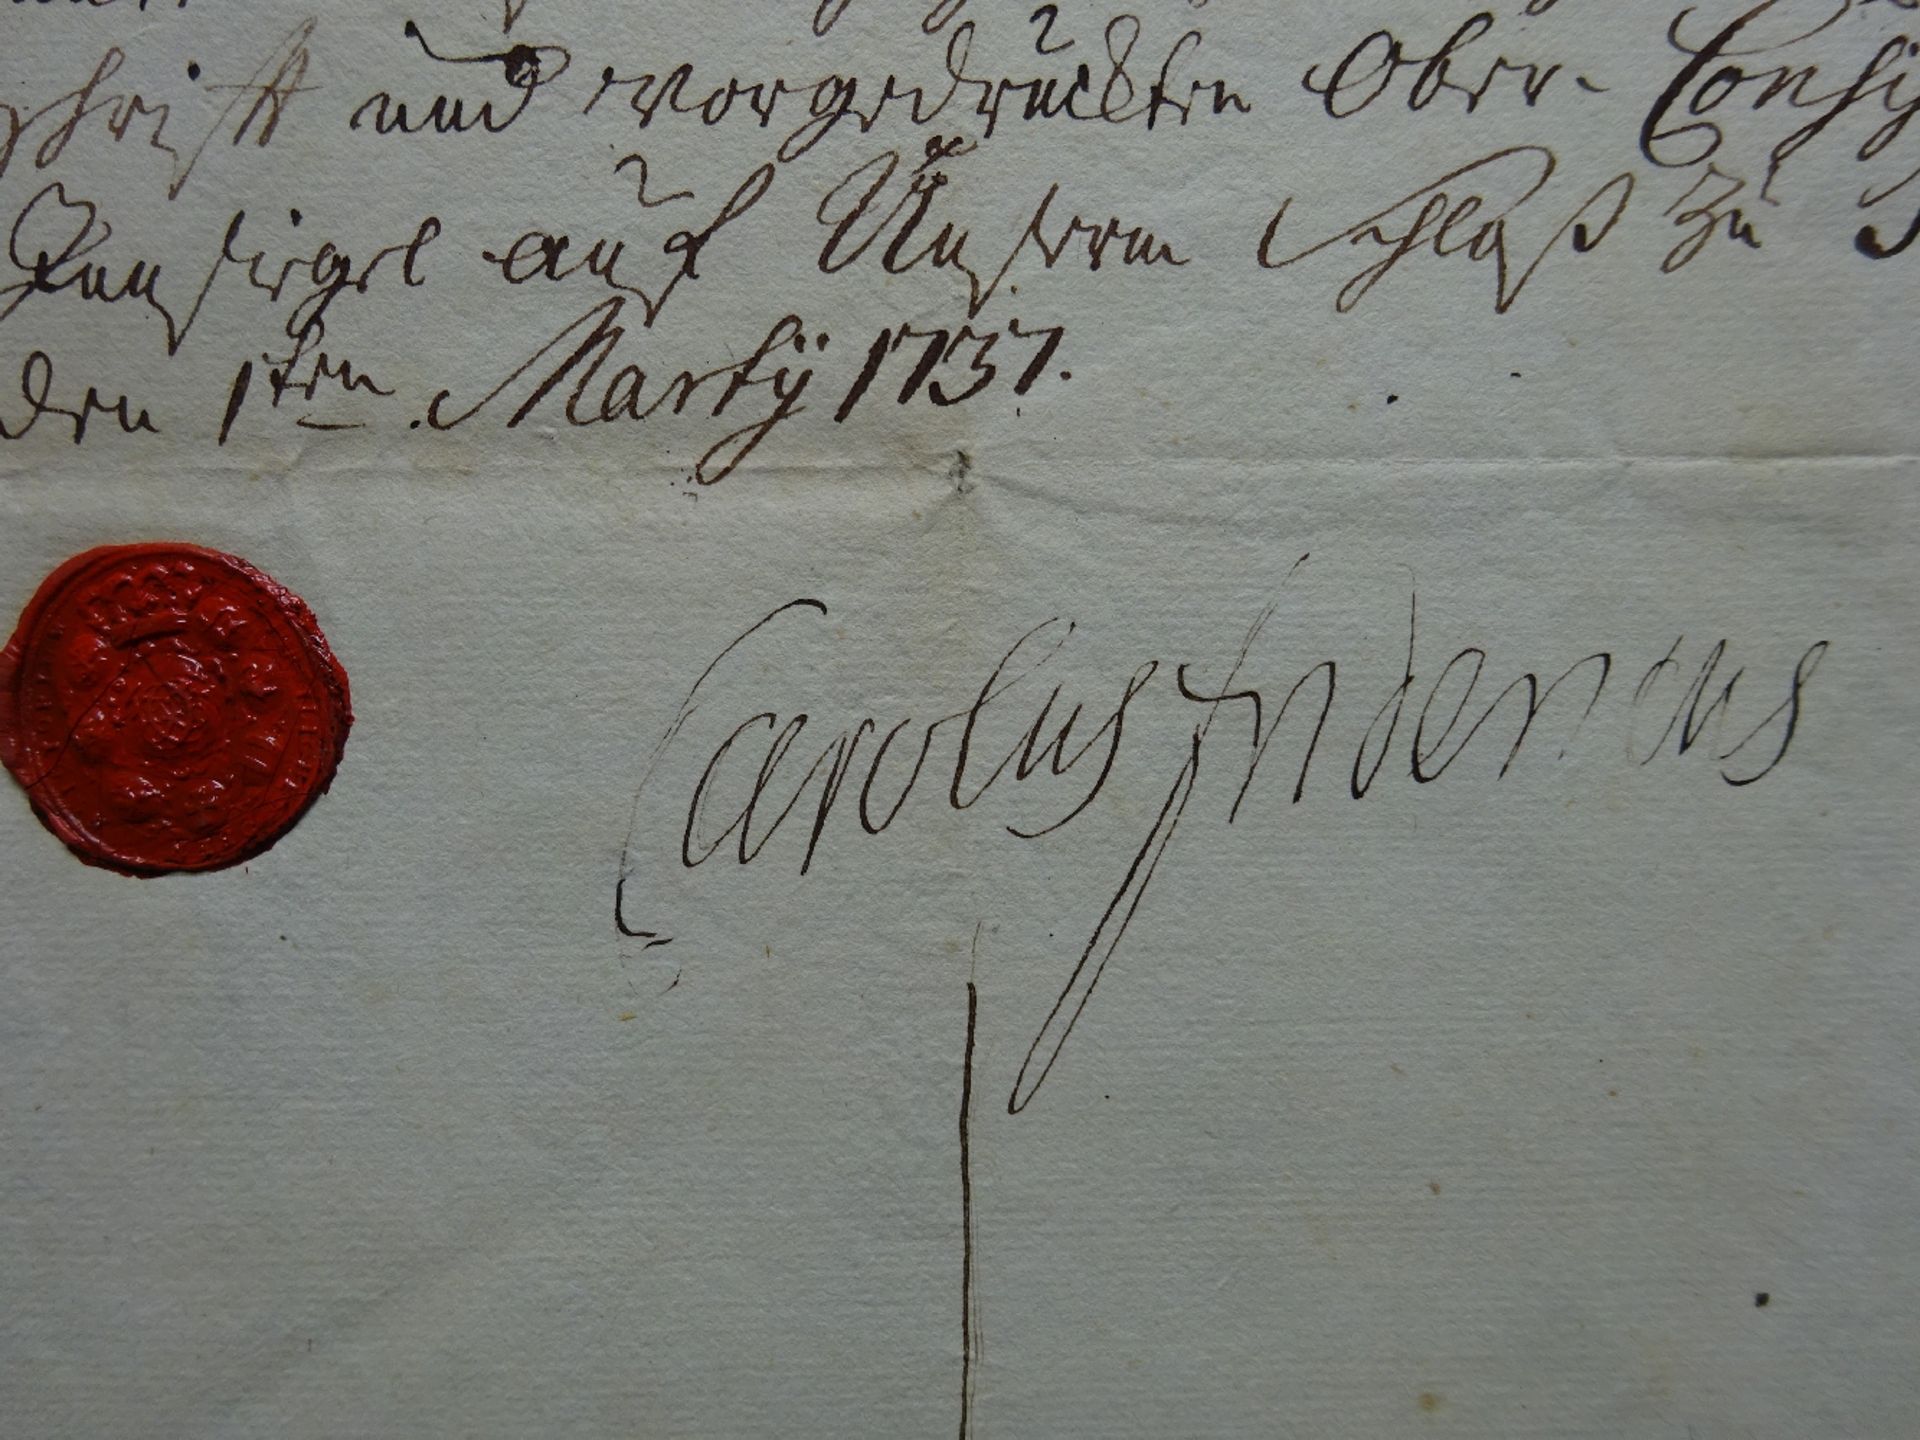 schrifft und vorgedrückten Ober-Consis
Innsiegel auf Unserm Schloß zu
den 1ten Martÿ 1737.
Carolus Fridericus